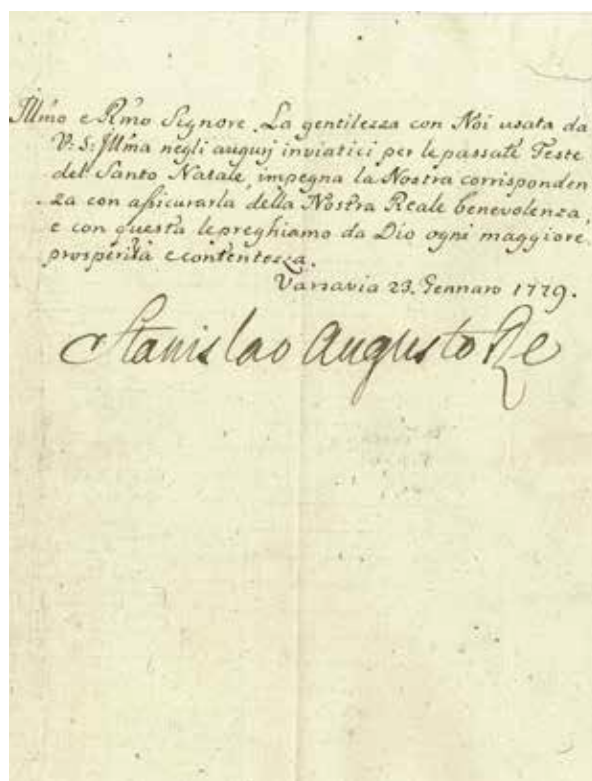 Illmo e Rmo Signore. La gentilezza con Noi usata da
V: S: Illma negli augurj inviatici per le passate Feste
del Santo Natale, impegna la Nostra corrisponden
za con assicurarla della Nostra Reale benevolenza,
e con questa le preghiamo da Dio ogni maggiore
prosperità e contentezza.
Varsavia 23. Gennaro 1779.
Stanislao Augusto Re